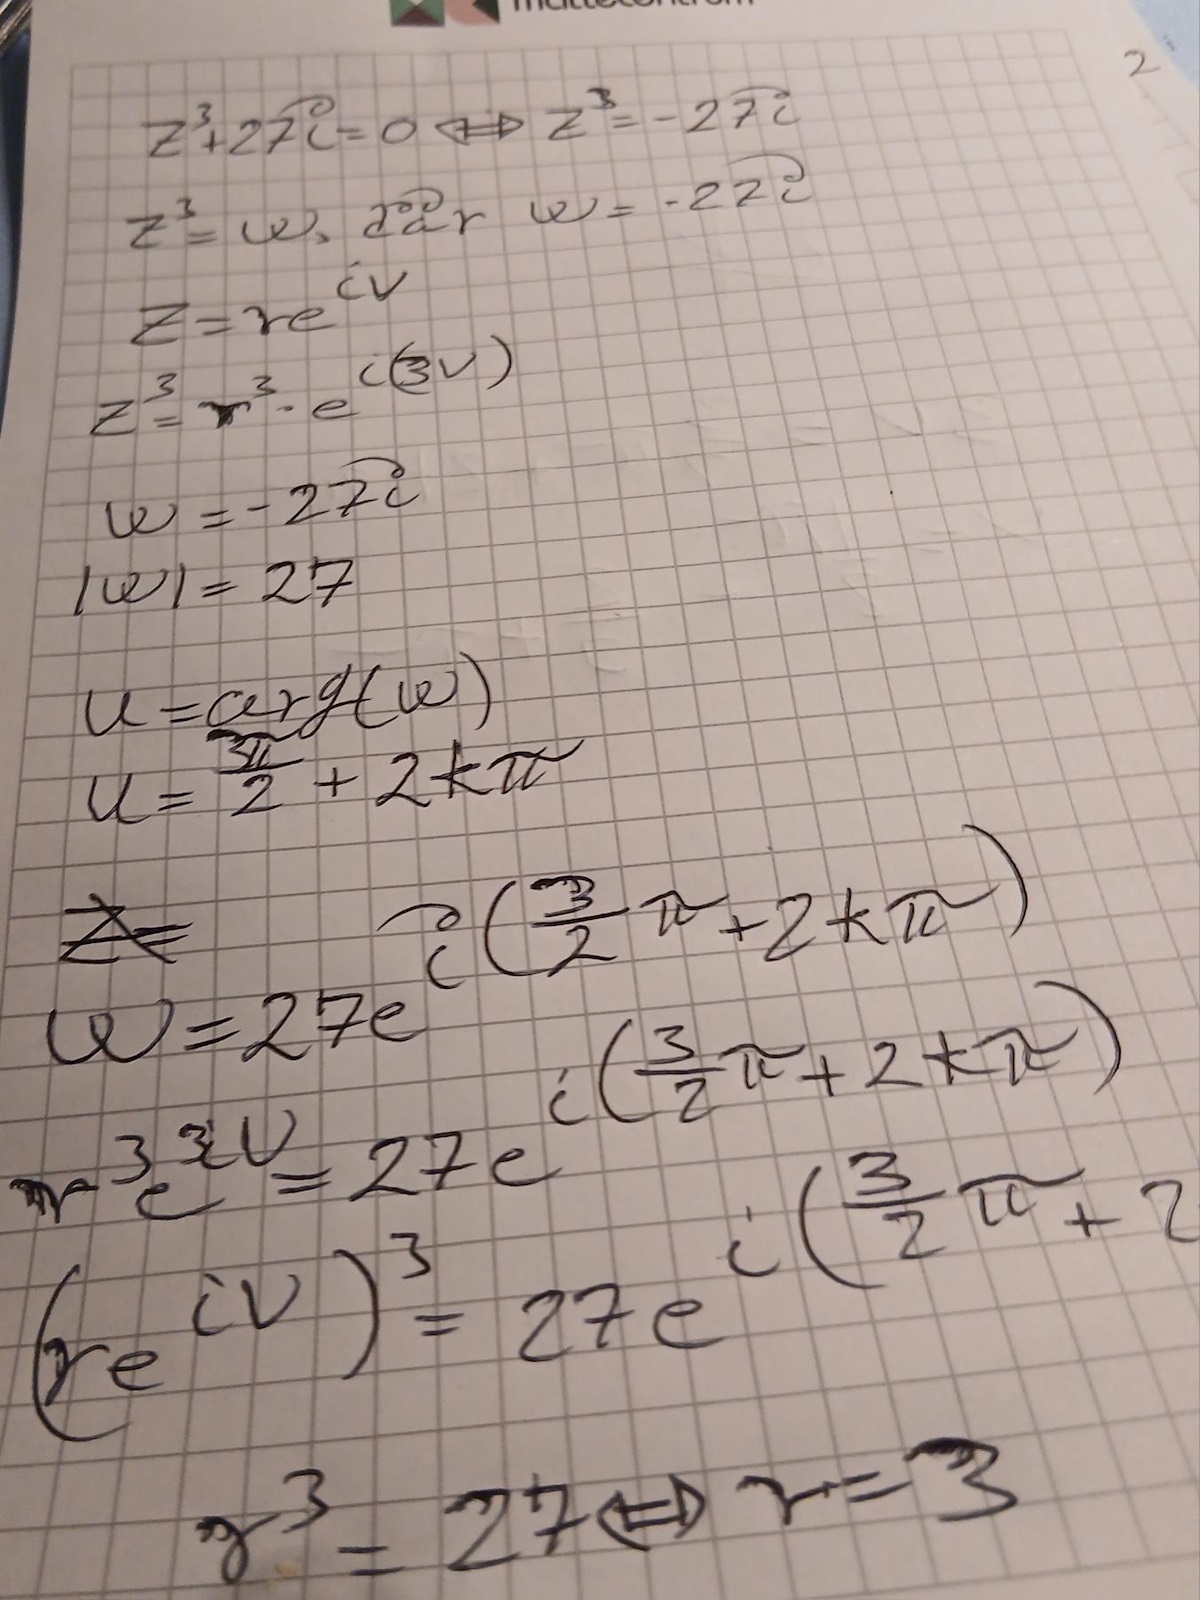 mattecentrum
2
z³+27i=0 ⇔ z³=-27i
z³=w, där w=-27i
z=re^{iv}
z³=r³·e^{i(3v)}
w=-27i
|w|=27
u=arg(w)
u=3π/2+2kπ
z=
w=27e^{i(3/2 π+2kπ)}
r³e^{3iv}=27e^{i(3/2 π+2kπ)}
(re^{iv})³=27e^{i(3/2 π+2
r³=27⇔r=3